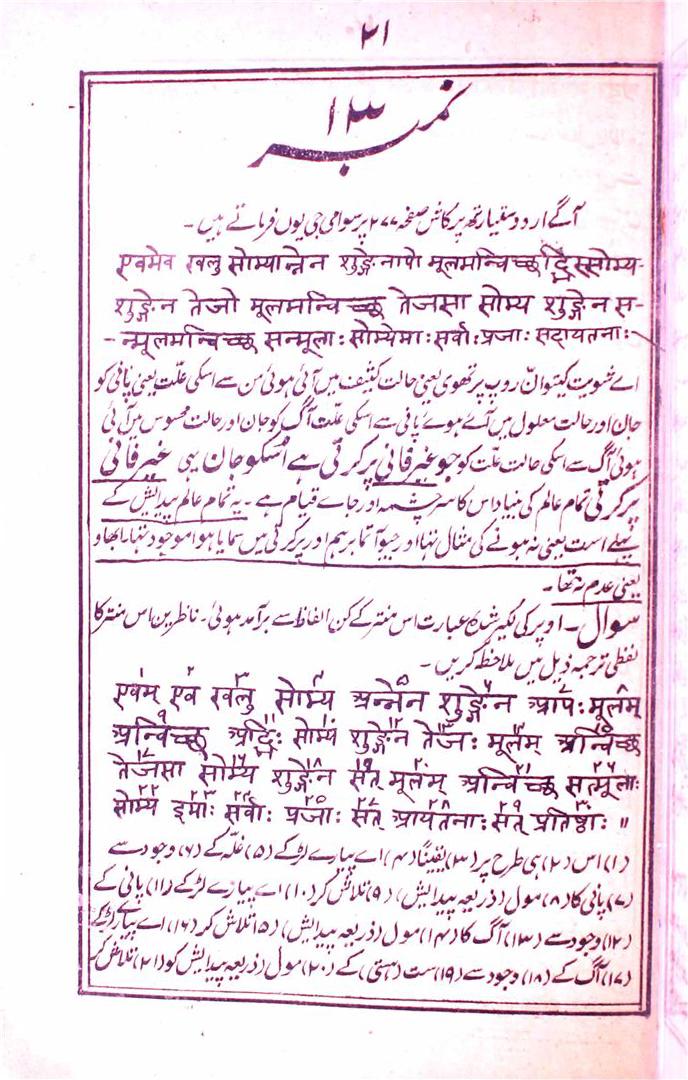 ۲۱
نمبر ۱۳
آگے اردو ستیارتھ پرکاش صفحہ ۲۷۷ پر سوامی جی یوں فرماتے ہیں۔
एवमेव खलु सोम्यान्नेन शुङ्गेनापो मूलमन्विच्छद्भिस्सोम्य-
शुङ्गेन तेजो मूलमन्विच्छ तेजसा सोम्य शुङ्गेन स-
-न्मूलमन्विच्छ सन्मूलाः सोम्येमाः सर्वाः प्रजाः सदायतनाः
اے شویت کیتو انّ روپ پرتھوی یعنی حالت کثیف میں آئی ہوئی من سے اسکی علّت یعنی پانی کو
جان اور حالت معلول میں آئے ہوئے پانی سے اسکی علّت آگ کو جان اور حالت محسوس میں آئی
ہوئی آگ سے اسکی حالت علّت کو جو غیر فانی پرکرتی ہے اُسکو جان یہی غیر فانی
پرکرتی تمام عالم کی بنیاد اس کا سرچشمہ اور جاے قیام ہے۔ یہ تمام عالم پیدایش کے
پہلے است یعنی نہ ہونے کی مثال تہا اور جیو آتما برہم اور پرکرتی میں سمایا ہوا موجود تہا۔ ابھاو
یعنی عدم نہ تھا۔
سوال۔ اوپر کی لکیر شدہ عبارت اس منتر کے کن الفاظ سے برآمد ہوئی۔ ناظرین اس منتر کا
لفظی ترجمہ ذیل میں ملاحظہ کریں۔
एवम् एव खलु सोम्य अन्नेन शुङ्गेन आपः मूलम्
अन्विच्छ अद्भिः सोम्य शुङ्गेन तेजः मूलम् अन्विच्छ
तेजसा सोम्य शुङ्गेन सत् मूलम् अन्विच्छ सत्मूलाः
सोम्य इमाः सर्वाः प्रजाः सत् आयतनाः सत् प्रतिष्ठाः ॥
(۱) اس (۲) ہی طرح پر (۳) یقیناً (۴) اے پیارے لڑکے (۵) غلّہ کے (۶) وجود سے
(۷) پانی کا (۸) مول (ذریعہ پیدایش) (۹) تلاش کر (۱۰) اے پیارے لڑکے (۱۱) پانی کے
(۱۲) وجود سے (۱۳) آگ کا (۱۴) مول (ذریعہ پیدایش) (۱۵) تلاش کر (۱۶) اے پیارے لڑکے
(۱۷) آگ کے (۱۸) وجود سے (۱۹) ست (ہستی) کے (۲۰) مول (ذریعہ پیدایش کو (۲۱) تلاش کر